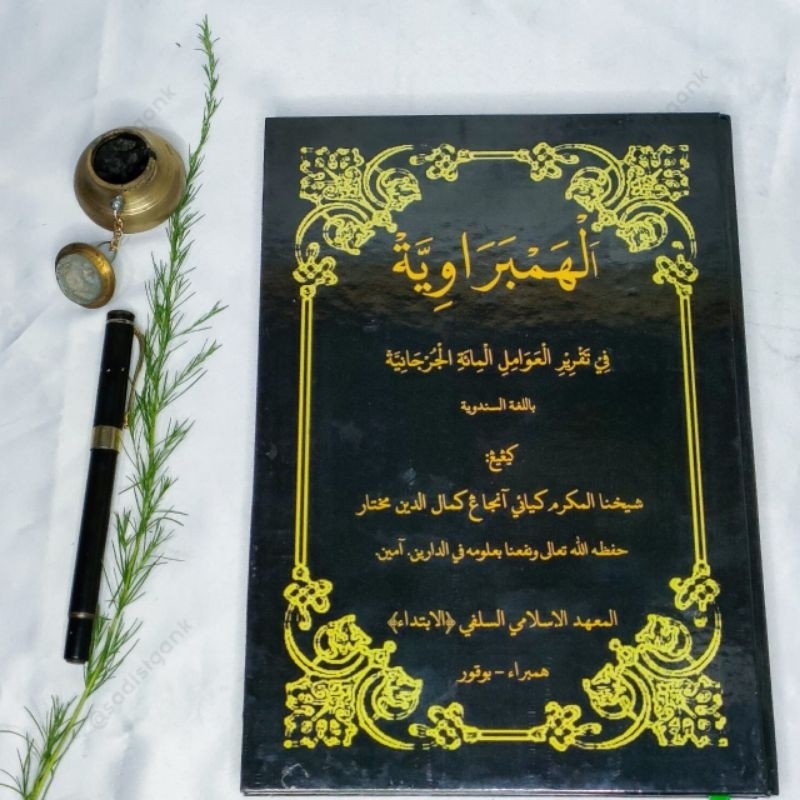 اَلْهَمْبَرَاوِيَّةْ
فِيْ تَقْرِيْرِ الْعَوَامِلِ الْمِائَةِ الْجُرْجَانِيَّةْ
باللغة السندوية
كيڠيڠ:
شيخنا المكرم كياني آنجاڠ كمال الدين مختار
حفظه الله تعالى ونفعنا بعلومه في الدارين. آمين.
المعهد الاسلامي السلفي ﴿الابتداء﴾
همبراء - بوقور
@sadistgank